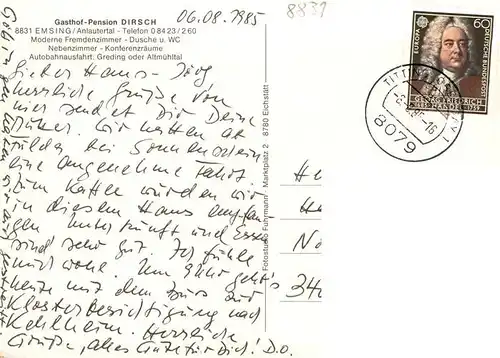 Gasthof-Pension DIRSCH
8831 EMSING/Anlautertal - Telefon 08423/260
Moderne Fremdenzimmer - Dusche u. WC
Nebenzimmer - Konferenzräume
Autobahnausfahrt: Greding oder Altmühltal
06.08.1985
8831
Lieber Hans-Jörg
herzliche Grüße von
hier sendet Dir Deine
Mutter. Wir hatten
bei Sonnenschein
eine angenehme Fahrt
zum Kaffee wurden wir
in diesem Haus empfan
gen Unterkunft und Essen
sind sehr gut. Ich fühle
mich wohl. Um Uhr geht's
heute mit dem Bus zur
Klosterbesichtigung nach
Kehlheim. Herzliche
Grüße, alles Gute für Dich! D.O.
Fotostudio Fuhrmann Marktplatz 2 8780 Eichstätt
EUROPA CEPT
60
DEUTSCHE BUNDESPOST
GEORG FRIEDRICH
HÄNDEL 1685-1759
TITTING
8079
No
340